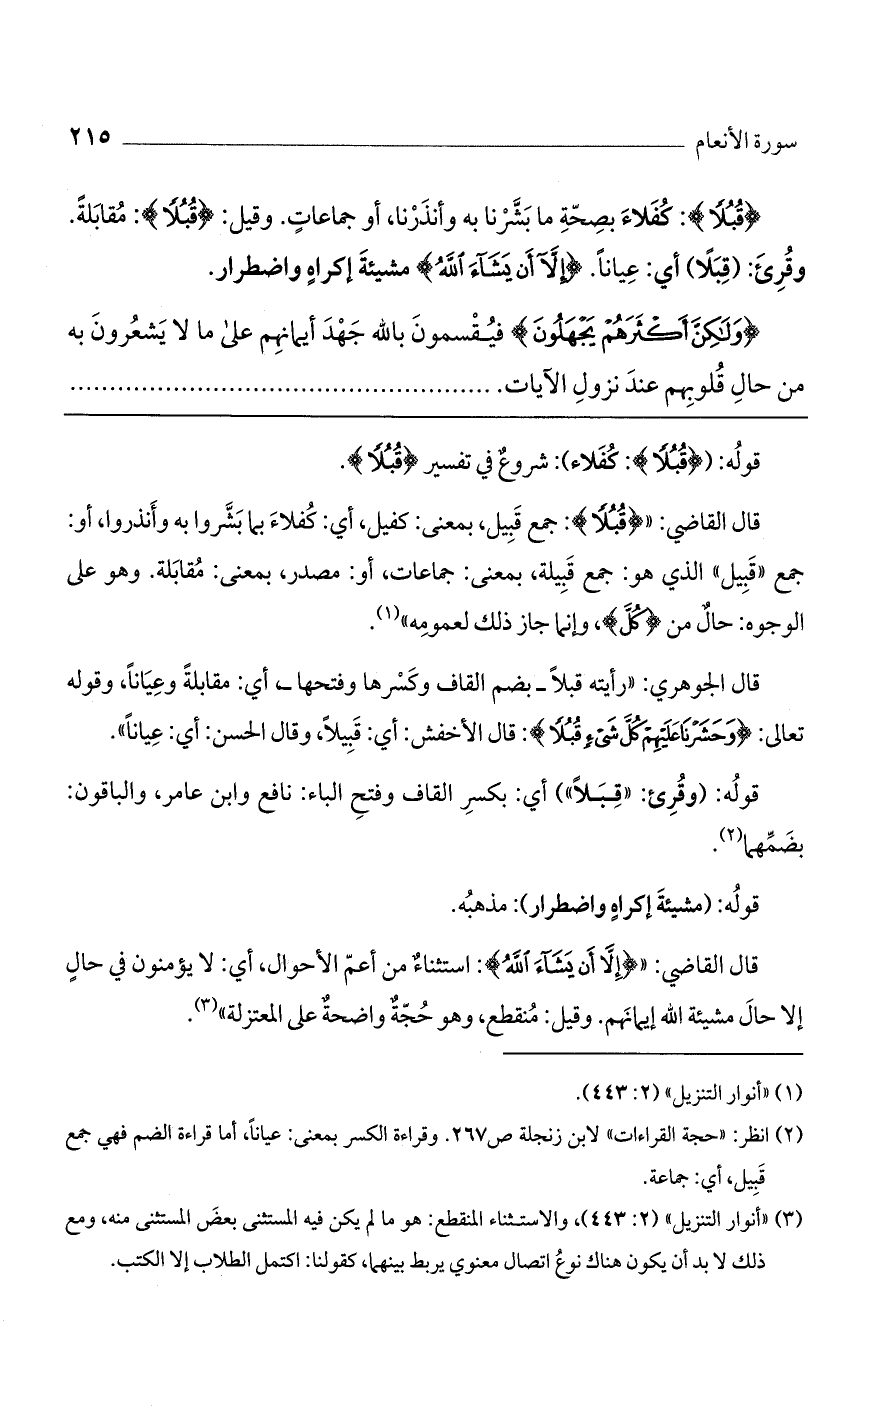 سورة الأنعام ٢١٥
﴿قُبُلًا﴾: كُفَلاءَ بصِحّةِ ما بَشَّرْنا به وأنذَرْنا، أو جماعاتٍ. وقيل: ﴿قُبُلًا﴾: مُقابَلةً.
وقُرِئَ: (قِبَلًا) أي: عِياناً. ﴿إِلَّآ أَن يَشَآءَ ٱللَّهُ﴾ مشيئةَ إكراهٍ واضطرار.
﴿وَلَٰكِنَّ أَكْثَرَهُمْ يَجْهَلُونَ﴾ فيُقْسمونَ بالله جَهْدَ أيمانِهم علىٰ ما لا يَشعُرونَ به
من حالِ قُلوبِهم عندَ نزولِ الآيات. ....................................................
قولُه: (﴿قُبُلًا﴾: كُفَلاء): شروعٌ في تفسير ﴿قُبُلًا﴾.
قال القاضي: «﴿قُبُلًا﴾: جمع قَبِيل، بمعنى: كفيل، أي: كُفلاءَ بما بَشَّروا به وأَنذروا، أو:
جمع «قَبِيل» الذي هو: جمع قَبِيلة، بمعنى: جماعات، أو: مصدر، بمعنى: مُقابَلة. وهو على
الوجوه: حالٌ من ﴿كُلَّ﴾، وإنما جاز ذلك لعمومِه»(١).
قال الجوهري: «رأيته قبلاً ـ بضم القاف وكَسْرها وفتحها ـ، أي: مقابلةً وعِيَاناً، وقوله
تعالى: ﴿وَحَشَرْنَا عَلَيْهِمْ كُلَّ شَىْءٍ قُبُلًا﴾: قال الأخفش: أي: قَبِيلاً، وقال الحسن: أي: عِياناً».
قولُه: (وقُرِئ: «قِبَلاً») أي: بكسرِ القاف وفتحِ الباء: نافع وابن عامر، والباقون:
بضَمِّهما(٢).
قولُه: (مشيئةَ إكراهٍ واضطرار): مذهبُه.
قال القاضي: «﴿إِلَّآ أَن يَشَآءَ ٱللَّهُ﴾: استثناءٌ من أعمّ الأحوال، أي: لا يؤمنون في حالٍ
إلا حالَ مشيئة الله إيمانَهم. وقيل: مُنقطع، وهو حُجّةٌ واضحةٌ على المعتزلة»(٣).
(١) «أنوار التنزيل» (٢: ٤٤٣).
(٢) انظر: «حجة القراءات» لابن زنجلة ص٢٦٧. وقراءة الكسر بمعنى: عياناً، أما قراءة الضم فهي جمع
قَبِيل، أي: جماعة.
(٣) «أنوار التنزيل» (٢: ٤٤٣)، والاستثناء المنقطع: هو ما لم يكن فيه المستثنى بعضَ المستثنى منه، ومع
ذلك لا بد أن يكون هناك نوعُ اتصال معنوي يربط بينهما، كقولنا: اكتمل الطلاب إلا الكتب.